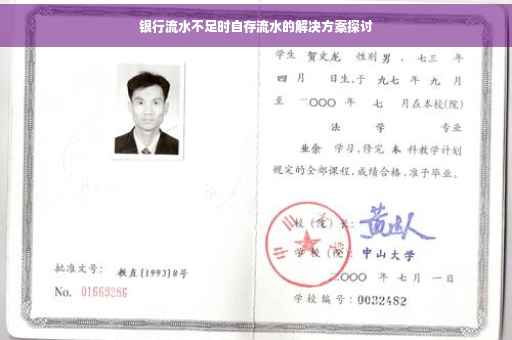 银行流水不足时自存流水的解决方案探讨
学生 贺文龙 性别 男 、七三 年
四 月 日生,于 九七 年 九 月
至 二〇〇〇 年 七 月在本校(院)
法 学 专业
业余 学习,修完 本 科教学计划
规定的全部课程,成绩合格,准予毕业。
校(院)长:
学校(院): 中山大学
批准文号: 教直[1993]8号
二〇〇〇 年 七 月 一 日
No. 01669286
学校编号:0032482